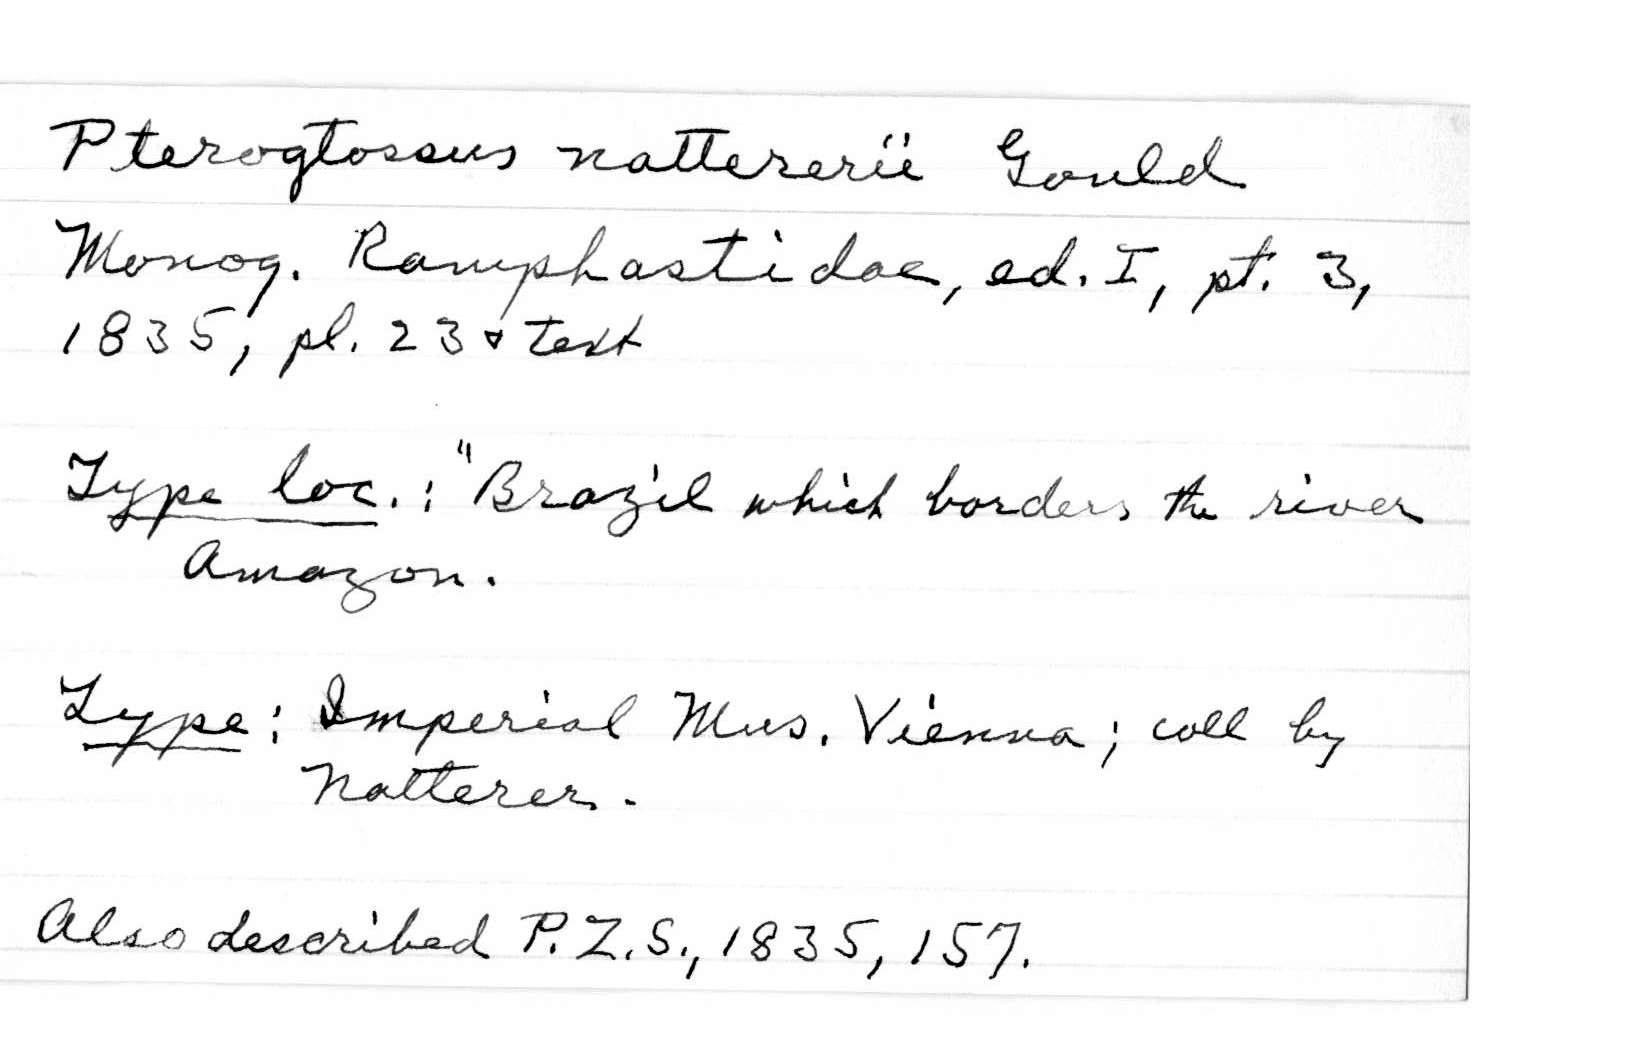 Pteroglossus nattererii Gould
Monog. Ramphastidae, ed. I, pt. 3,
1835, pl. 23 & text
Type loc.: "Brazil which borders the river
Amazon.
Type: Imperial Mus. Vienna; coll by
Natterer.
Also described P.Z.S., 1835, 157.